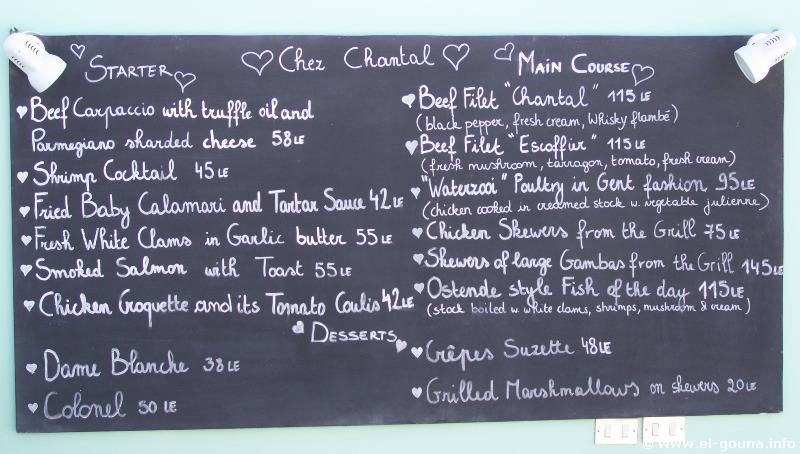 Chez Chantal
STARTER
Beef Carpaccio with truffle oil and
Parmegiano sharded cheese 58 LE
Shrimp Cocktail 45 LE
Fried Baby Calamari and Tartar Sauce 42 LE
Fresh White Clams in Garlic butter 55 LE
Smoked Salmon with Toast 55 LE
Chicken Croquette and its Tomato Coulis 42 LE
MAIN COURSE
Beef Filet "Chantal" 115 LE
(black pepper, fresh cream, Whisky flambé)
Beef Filet "Escoffier" 115 LE
(fresh mushroom, tarragon, tomato, fresh cream)
"Waterzooi" Poultry in Gent fashion 95 LE
(chicken cooked in creamed stock w. vegetable julienne)
Chicken Skewers from the Grill 75 LE
Skewers of large Gambas from the Grill 145 LE
Ostende style Fish of the day 115 LE
(stock boiled w. white clams, shrimps, mushroom & cream)
DESSERTS
Dame Blanche 38 LE
Colonel 50 LE
Crêpes Suzette 48 LE
Grilled Marshmallows on skewers 20 LE
© www.el-gouna.info